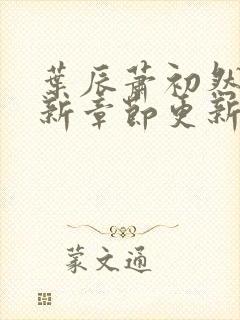 葉辰蕭初然
新章節更新
蒙文通